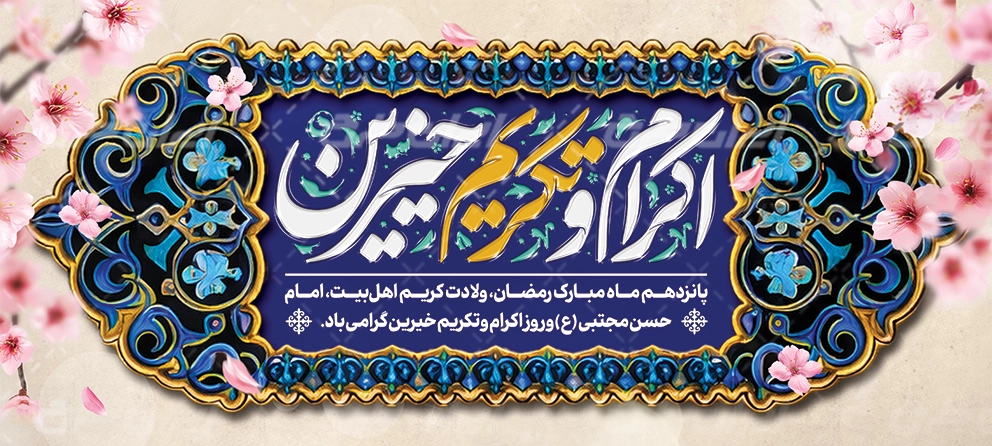 اکرام و تکریم خیرین
پانزدهم ماه مبارک رمضان، ولادت کریم اهل بیت، امام
حسن مجتبی (ع) و روز اکرام و تکریم خیرین گرامی باد.